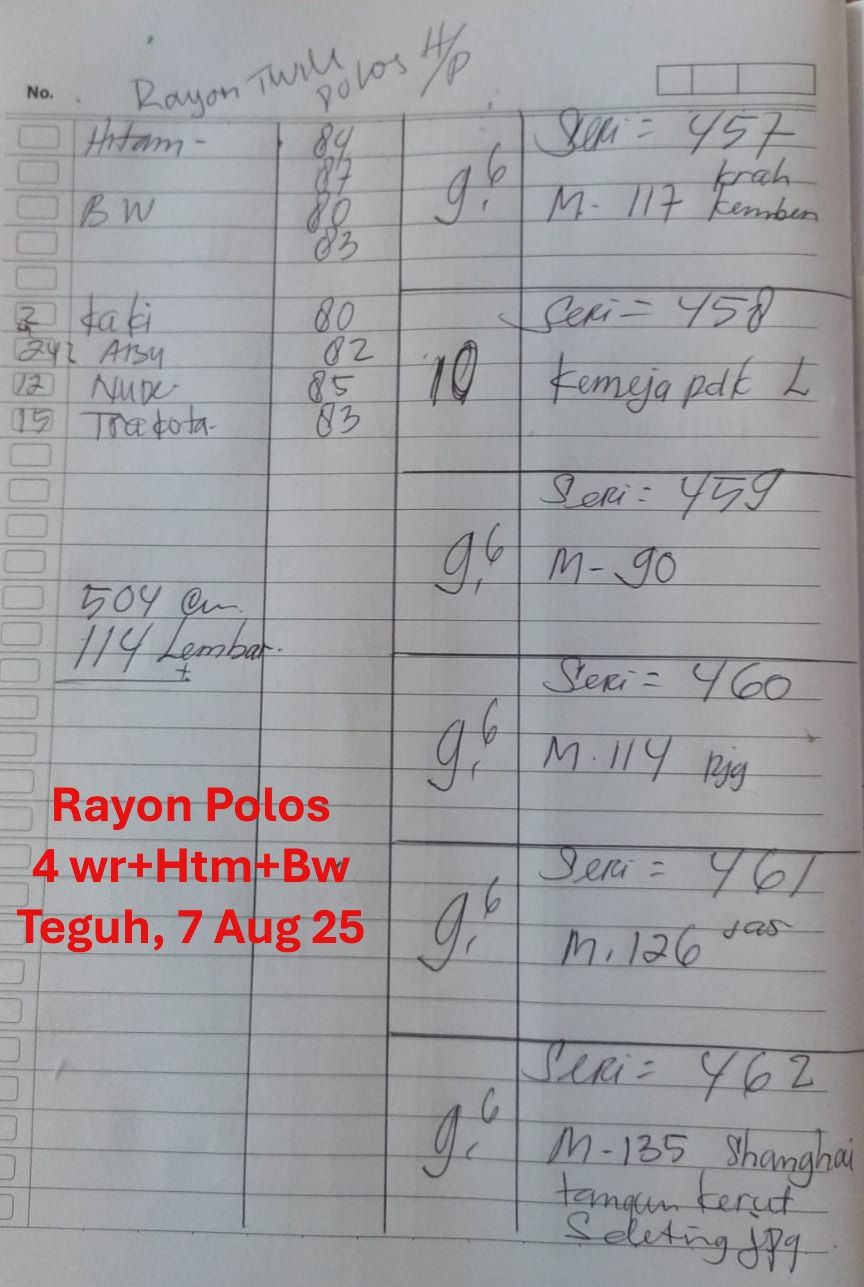 Rayon Twill
polos H/P
No.
Hitam - 84
87
BW 80
83
2 kaki 80
242 ABU 82
12 Nude- 85
15 Tracota- 83
504 Cm.
114 Lembar.
±
Rayon Polos
4 wr+Htm+Bw
Teguh, 7 Aug 25
Seri = 457
9,6 M- 117 krah
kemben
Seri = 458
10 kemeja pdk L
Seri = 459
9,6 M- 90
Seri = 460
9,6 M.114 pjg
Seri = 461
9,6 M.126 sas
Seri = 462
9,6 M-135 Shanghai
tangan kerut
Seleting jpg